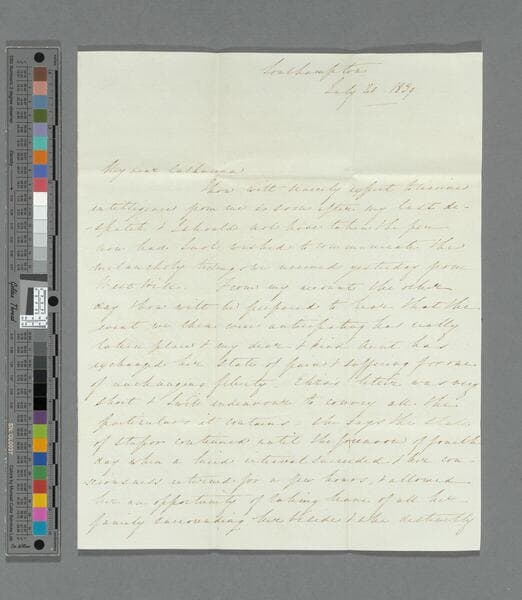 Southampton
July 21 1839
My dear Catharina
Thou wilt scarcely expect receiving
intelligence from me so soon after my last de-
-spatch & I should not have taken the pen
now had I not wished to communicate the
melancholy tidings we received yesterday from
West Hill. From my account the other
day thou wilt be prepared to hear that the
event we then were anticipating has really
taken place & my dear & kind Aunt has
exchanged her state of pain & suffering for one
of unchanging felicity. letter was very
short & I will endeavour to convey all the
particulars it contains. She says the state
of stupor continued until the forenoon of fourth
day when a lucid interval succeeded & her con
sciousness returned for a few hours, & allowed
her an opportunity of taking leave of all her
family surrounding her bedside & she distinctly